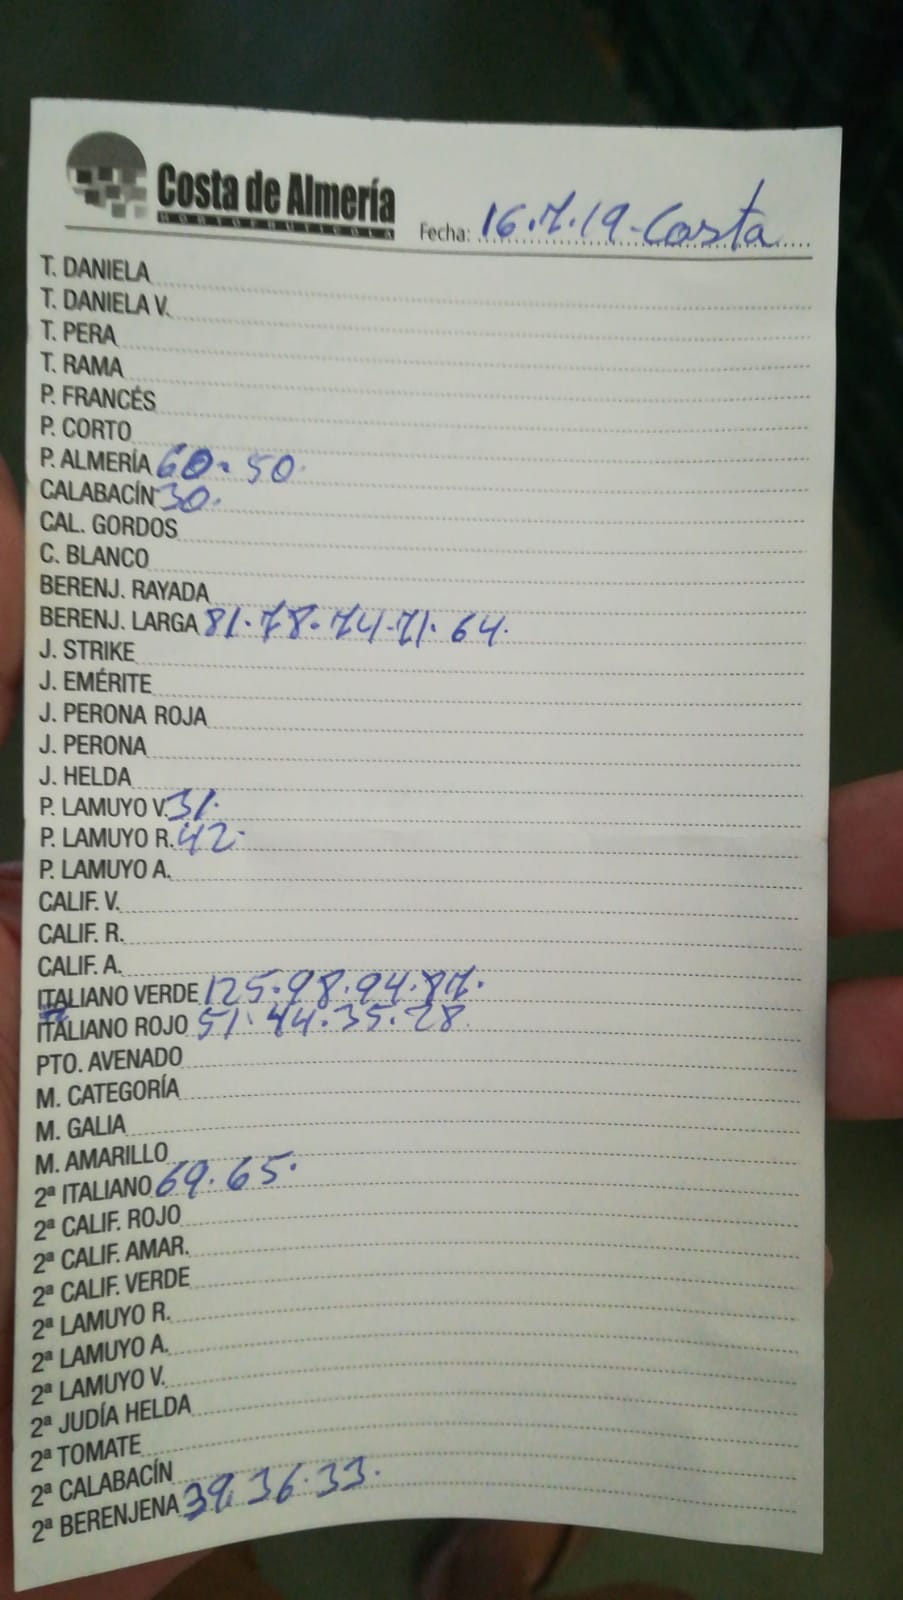 Costa de Almería
HORTOFRUTÍCOLA
Fecha: 16.7.19-Costa
T. DANIELA
T. DANIELA V.
T. PERA
T. RAMA
P. FRANCÉS
P. CORTO
P. ALMERÍA 60. 50.
CALABACÍN 30.
CAL. GORDOS
C. BLANCO
BERENJ. RAYADA
BERENJ. LARGA 81.78.74-71.64.
J. STRIKE
J. EMÉRITE
J. PERONA ROJA
J. PERONA
J. HELDA
P. LAMUYO V. 31.
P. LAMUYO R. 42.
P. LAMUYO A.
CALIF. V.
CALIF. R.
CALIF. A.
ITALIANO VERDE 125.98.94.87.
ITALIANO ROJO 51.44.35.28.
PTO. AVENADO
M. CATEGORÍA
M. GALIA
M. AMARILLO
2ª ITALIANO 69.65.
2ª CALIF. ROJO
2ª CALIF. AMAR.
2ª CALIF. VERDE
2ª LAMUYO R.
2ª LAMUYO A.
2ª LAMUYO V.
2ª JUDÍA HELDA
2ª TOMATE
2ª CALABACÍN
2ª BERENJENA 39.36.33.